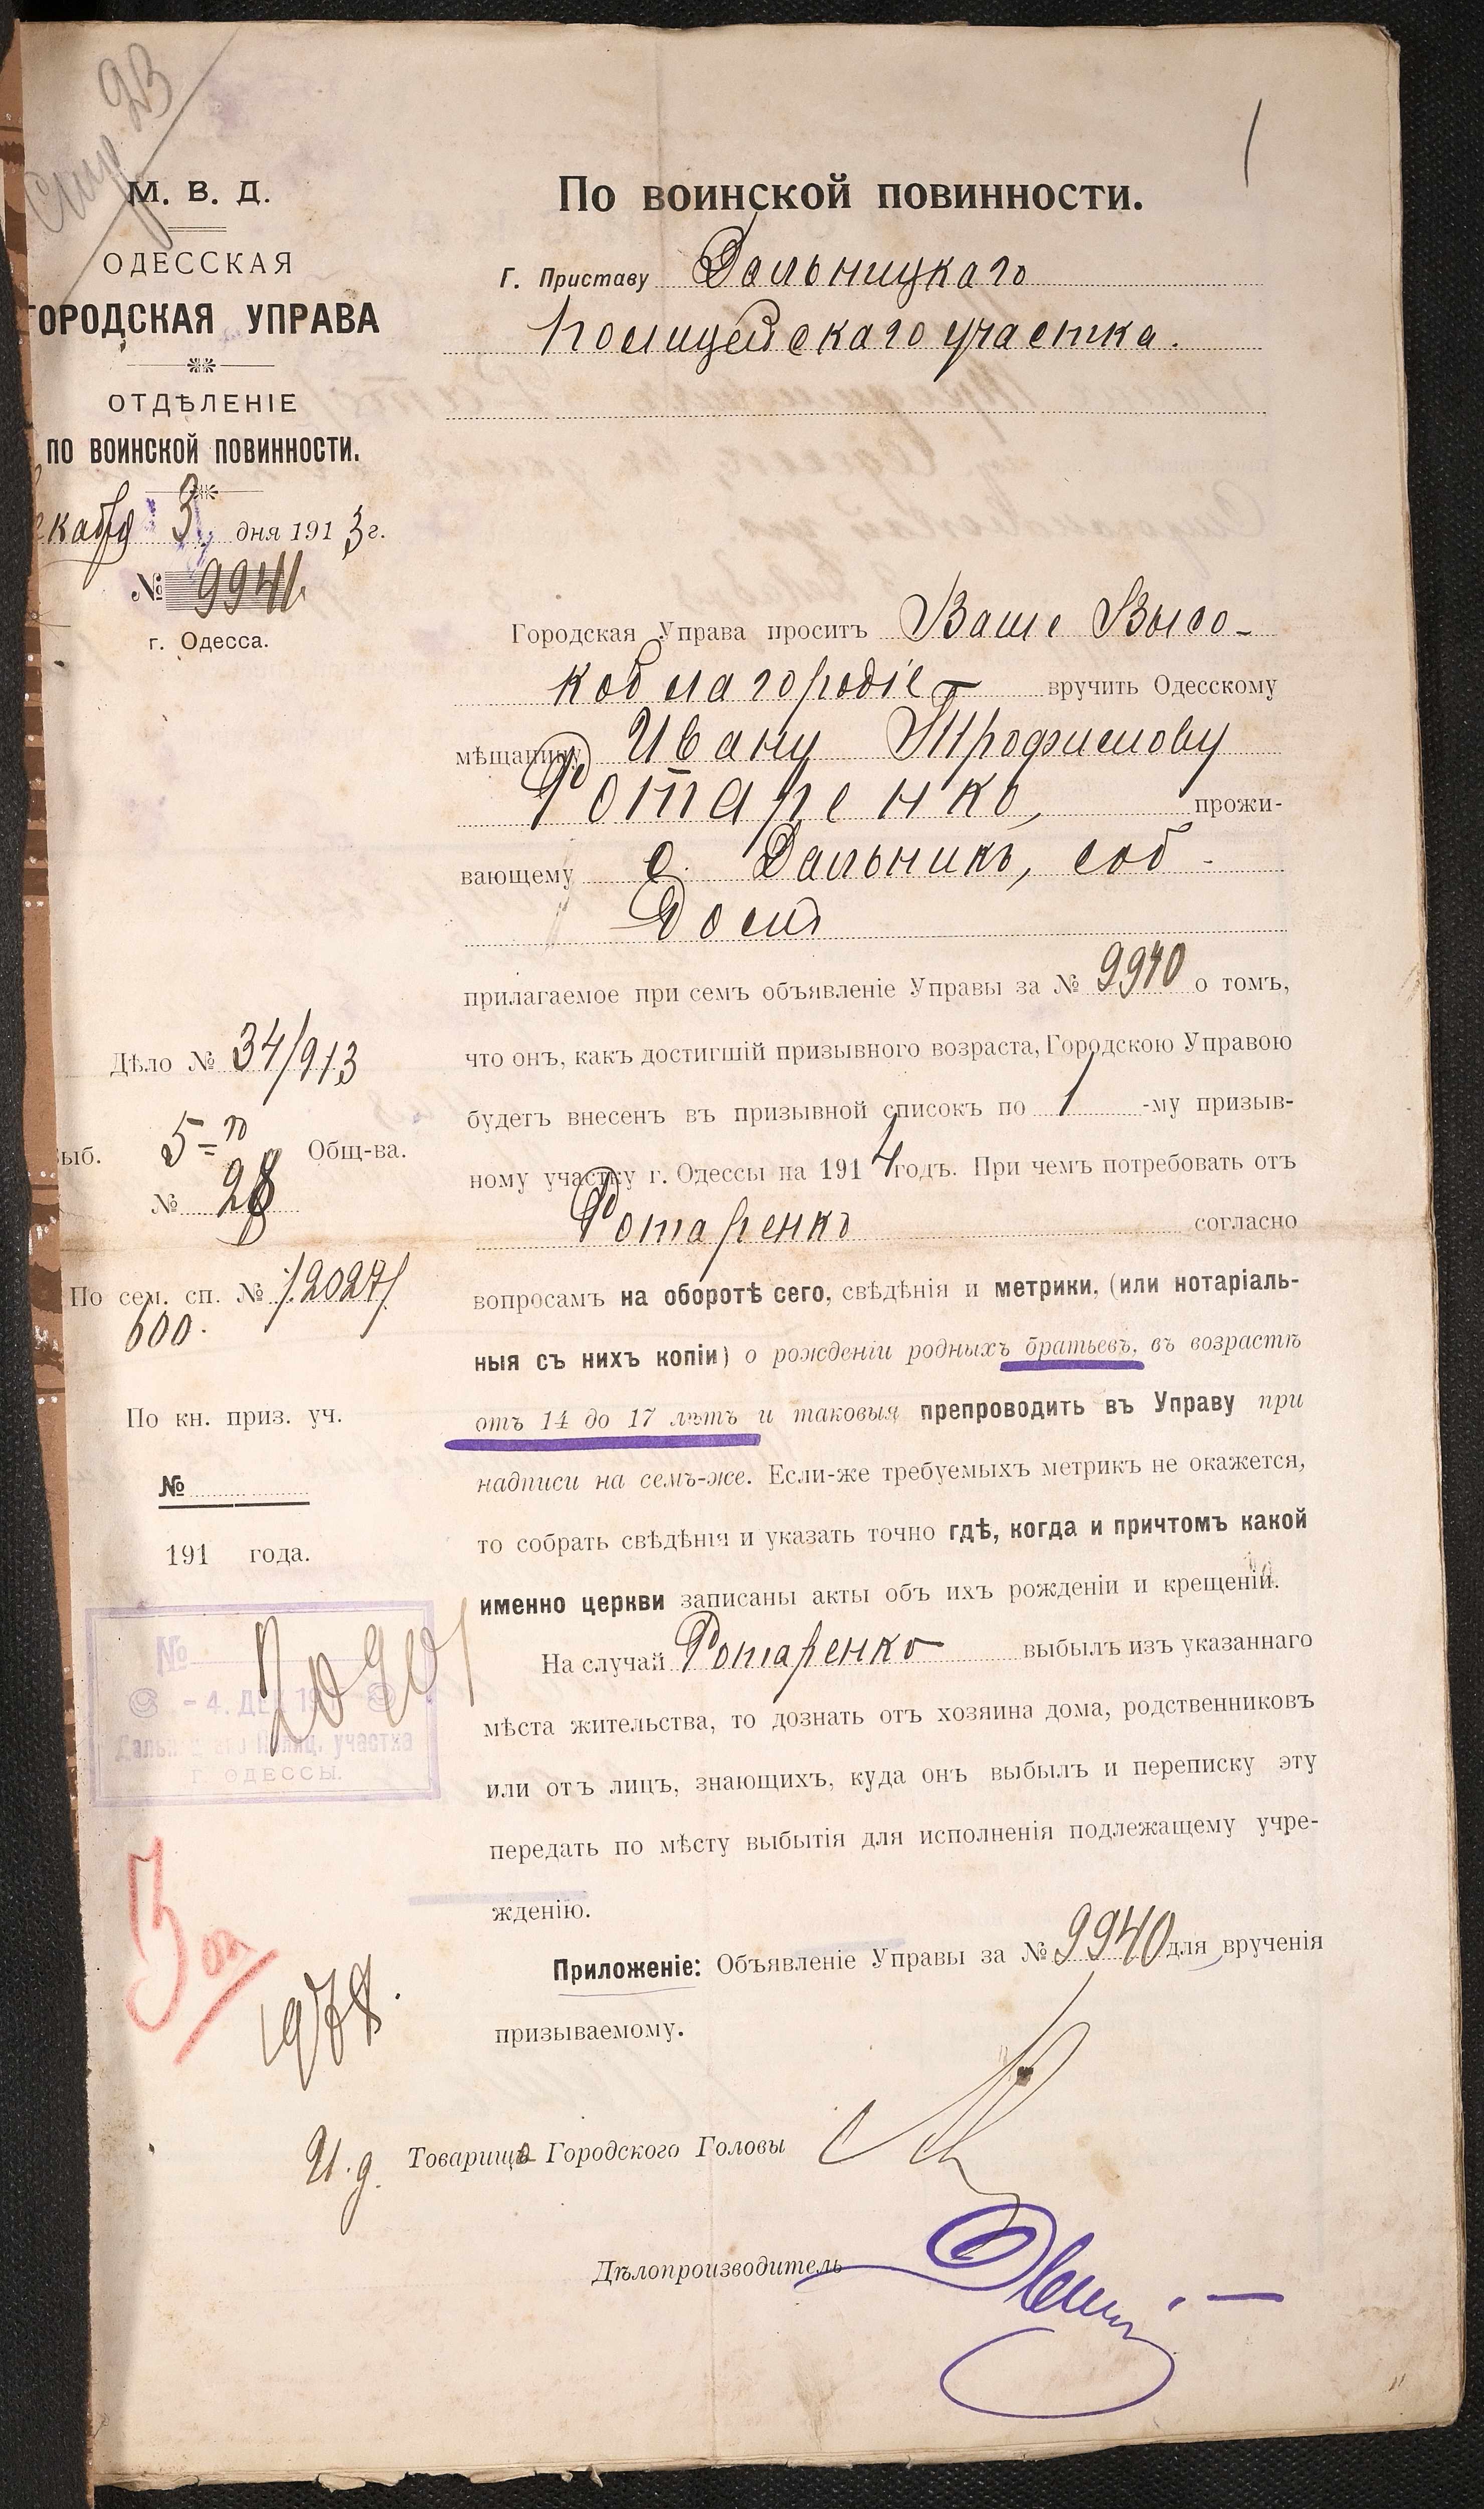 М. В. Д.
ОДЕССКАЯ
ГОРОДСКАЯ УПРАВА
ОТДѢЛЕНІЕ
ПО ВОИНСКОЙ ПОВИННОСТИ.
екабря 3 дня 1913 г.
№ 9941
г. Одесса.
Дѣло № 34/913
ыб. 5 = Общ-ва.
№ 28
По сем. сп. № 12027/
600.
По кн. приз. уч.
№
191 года.
№
- 4. ДЕК 19
Дальницкаго Полиц. участка
Г. ОДЕССЫ.
1
По воинской повинности.
Г. Приставу Дальницкаго
Полицейскаго участка.
Городская Управа проситъ Ваше Высо-
коблагородіе вручить Одесскому
мѣщанину Ивану Трофимову
Ротаренко, прожи-
вающему с. Дальникъ, соб.
домъ
прилагаемое при семъ объявленіе Управы за № 9940 о томъ,
что онъ, какъ достигшій призывного возраста, Городскою Управою
будетъ внесенъ въ призывной списокъ по 1 -му призыв-
ному участку г. Одессы на 1914 годъ. При чемъ потребовать отъ
Ротаренко согласно
вопросамъ на оборотѣ сего, свѣдѣнія и метрики, (или нотаріаль-
ныя съ нихъ копіи) о рожденіи родныхъ братьевъ, въ возрастѣ
отъ 14 до 17 лѣтъ и таковыя препроводить въ Управу при
надписи на семъ-же. Если-же требуемыхъ метрикъ не окажется,
то собрать свѣдѣнія и указать точно гдѣ, когда и причтомъ какой
именно церкви записаны акты объ ихъ рожденіи и крещеніи.
На случай Ротаренко выбылъ изъ указаннаго
мѣста жительства, то дознать отъ хозяина дома, родственниковъ
или отъ лицъ, знающихъ, куда онъ выбылъ и переписку эту
передать по мѣсту выбытія для исполненія подлежащему учре-
жденію.
Приложеніе: Объявленіе Управы за № 9940 для врученія
призываемому.
И. д. Товарища Городского Головы
Дѣлопроизводитель